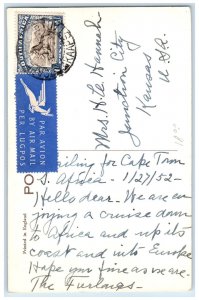 SOUTH AFRICA
PAR AVION
BY AIR MAIL
PER LUGPOS
Mrs. H Le Hannah
Junction City
Kansas
U.S.A.
PO
Sailing for Cape Town
S. Africa - 1/27/52 -
Hello dear - We are en
joying a cruise down
to Africa and up its
coast and into Europe
Hope your fine as we are.
The Furlongs -